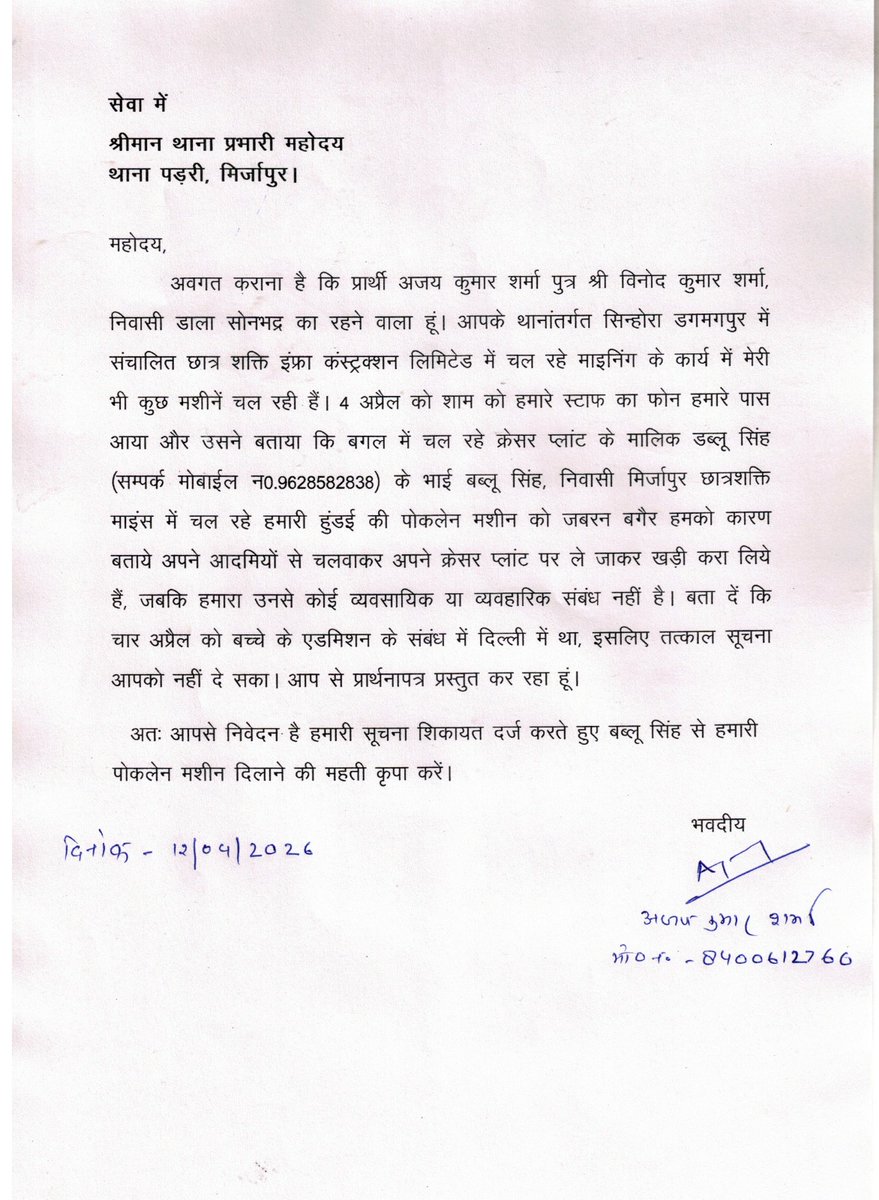 सेवा में
श्रीमान थाना प्रभारी महोदय
थाना पड़री, मिर्जापुर।
महोदय,
अवगत कराना है कि प्रार्थी अजय कुमार शर्मा पुत्र श्री विनोद कुमार शर्मा,
निवासी डाला सोनभद्र का रहने वाला हूं। आपके थानांतर्गत सिन्होरा डगमगपुर में
संचालित छात्र शक्ति इंफ्रा कंस्ट्रक्शन लिमिटेड में चल रहे माइनिंग के कार्य में मेरी
भी कुछ मशीनें चल रही हैं। 4 अप्रैल को शाम को हमारे स्टाफ का फोन हमारे पास
आया और उसने बताया कि बगल में चल रहे क्रेसर प्लांट के मालिक डब्लू सिंह
(सम्पर्क मोबाईल न0.9628582838) के भाई बब्लू सिंह, निवासी मिर्जापुर छात्रशक्ति
माइंस में चल रहे हमारी हुंडई की पोकलेन मशीन को जबरन बगैर हमको कारण
बताये अपने आदमियों से चलवाकर अपने क्रेसर प्लांट पर ले जाकर खड़ी करा लिये
हैं, जबकि हमारा उनसे कोई व्यवसायिक या व्यवहारिक संबंध नहीं है। बता दें कि
चार अप्रैल को बच्चे के एडमिशन के संबंध में दिल्ली में था, इसलिए तत्काल सूचना
आपको नहीं दे सका। आप से प्रार्थनापत्र प्रस्तुत कर रहा हूं।
अतः आपसे निवेदन है हमारी सूचना शिकायत दर्ज करते हुए बब्लू सिंह से हमारी
पोकलेन मशीन दिलाने की महती कृपा करें।
भवदीय
दिनांक - 12/04/2026
अजय कुमार शर्मा
मो0 नं. - 8400612760